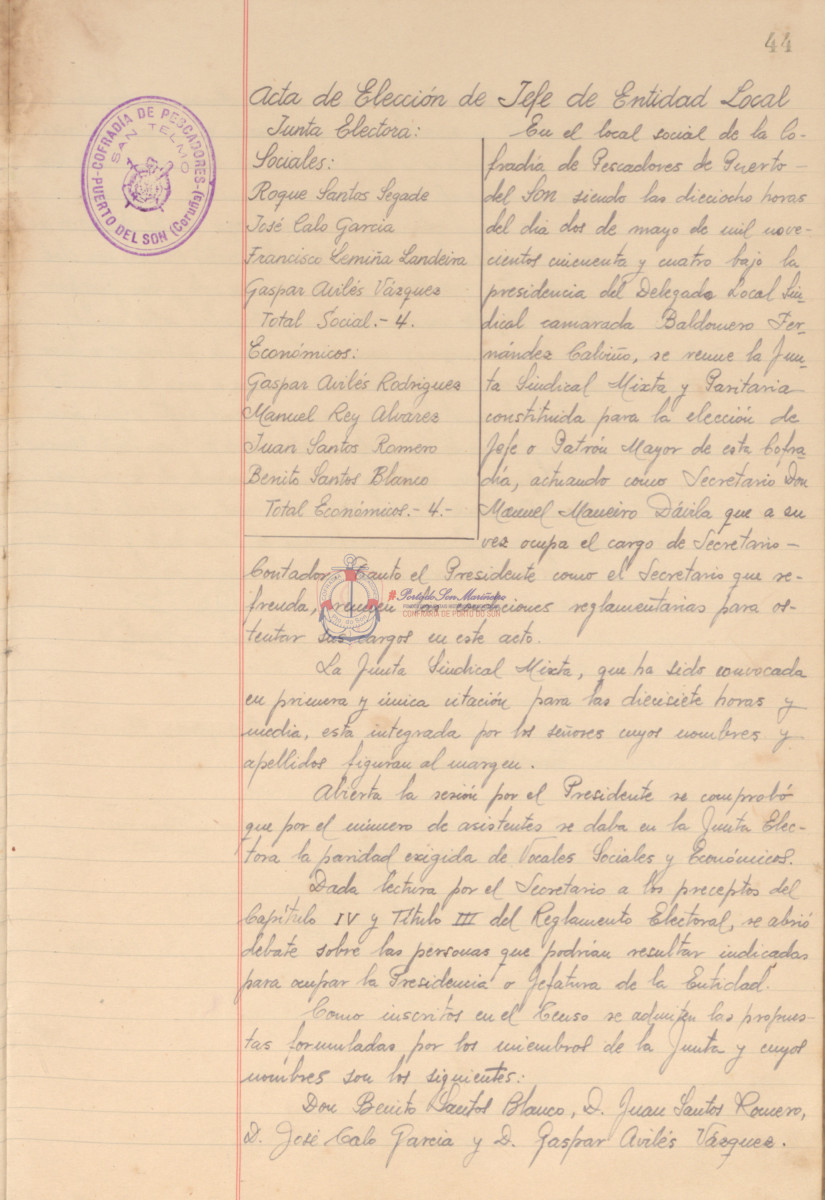 44
Acta de Elección de Jefe de Entidad Local
COFRADÍA DE PESCADORES
SAN TELMO
PUERTO DEL SON (Coruña)
Junta Electora:
Sociales:
Roque Santos Segade
José Calo García
Francisco Lemiña Landeira
Gaspar Avilés Vázquez
Total Social.- 4.
Económicos:
Gaspar Avilés Rodriguez
Manuel Rey Alvarez
Juan Santos Romero
Benito Santos Blanco
Total Económicos.- 4.-
En el local social de la Co-
fradía de Pescadores de Puerto -
del SON siendo las dieciocho horas
del dia dos de mayo de mil nove-
cientos cincuenta y cuatro bajo la
presidencia del Delegado Local Sin-
dical camarada Baldomero Fer-
nández Calviño, se reune la Jun-
ta Sindical Mixta y Paritaria
constituida para la elección de
Jefe o Patrón Mayor de esta Cofra-
día, actuando como Secretario Don
Manuel Maneiro Dávila que a su
vez ocupa el cargo de Secretario -
Contador. Tanto el Presidente como el Secretario que re-
frenda, reunen las condiciones reglamentarias para os-
tentar sus cargos en este acto.
#PortodoSonMariñeiro
CONFRARÍA DE PORTO DO SON
La Junta Sindical Mixta, que ha sido convocada
en primera y única citación para las diecisiete horas y
media, esta integrada por los señores cuyos nombres y
apellidos figuran al margen.
Abierta la sesión por el Presidente se comprobó
que por el número de asistentes se daba en la Junta Elec-
tora la paridad exigida de Vocales Sociales y Económicos.
Dada lectura por el Secretario a los preceptos del
Capítulo IV y Título III del Reglamento Electoral, se abrió
debate sobre las personas que podrían resultar indicadas
para ocupar la Presidencia o Jefatura de la Entidad.
Como inscritos en el Censo se admiten las propues-
tas formuladas por los miembros de la Junta y cuyos
nómbres son los siguientes:
Don Benito Santos Blanco, D. Juan Santos Romero,
D. José Calo Garcia y D. Gaspar Avilés Vázquez.